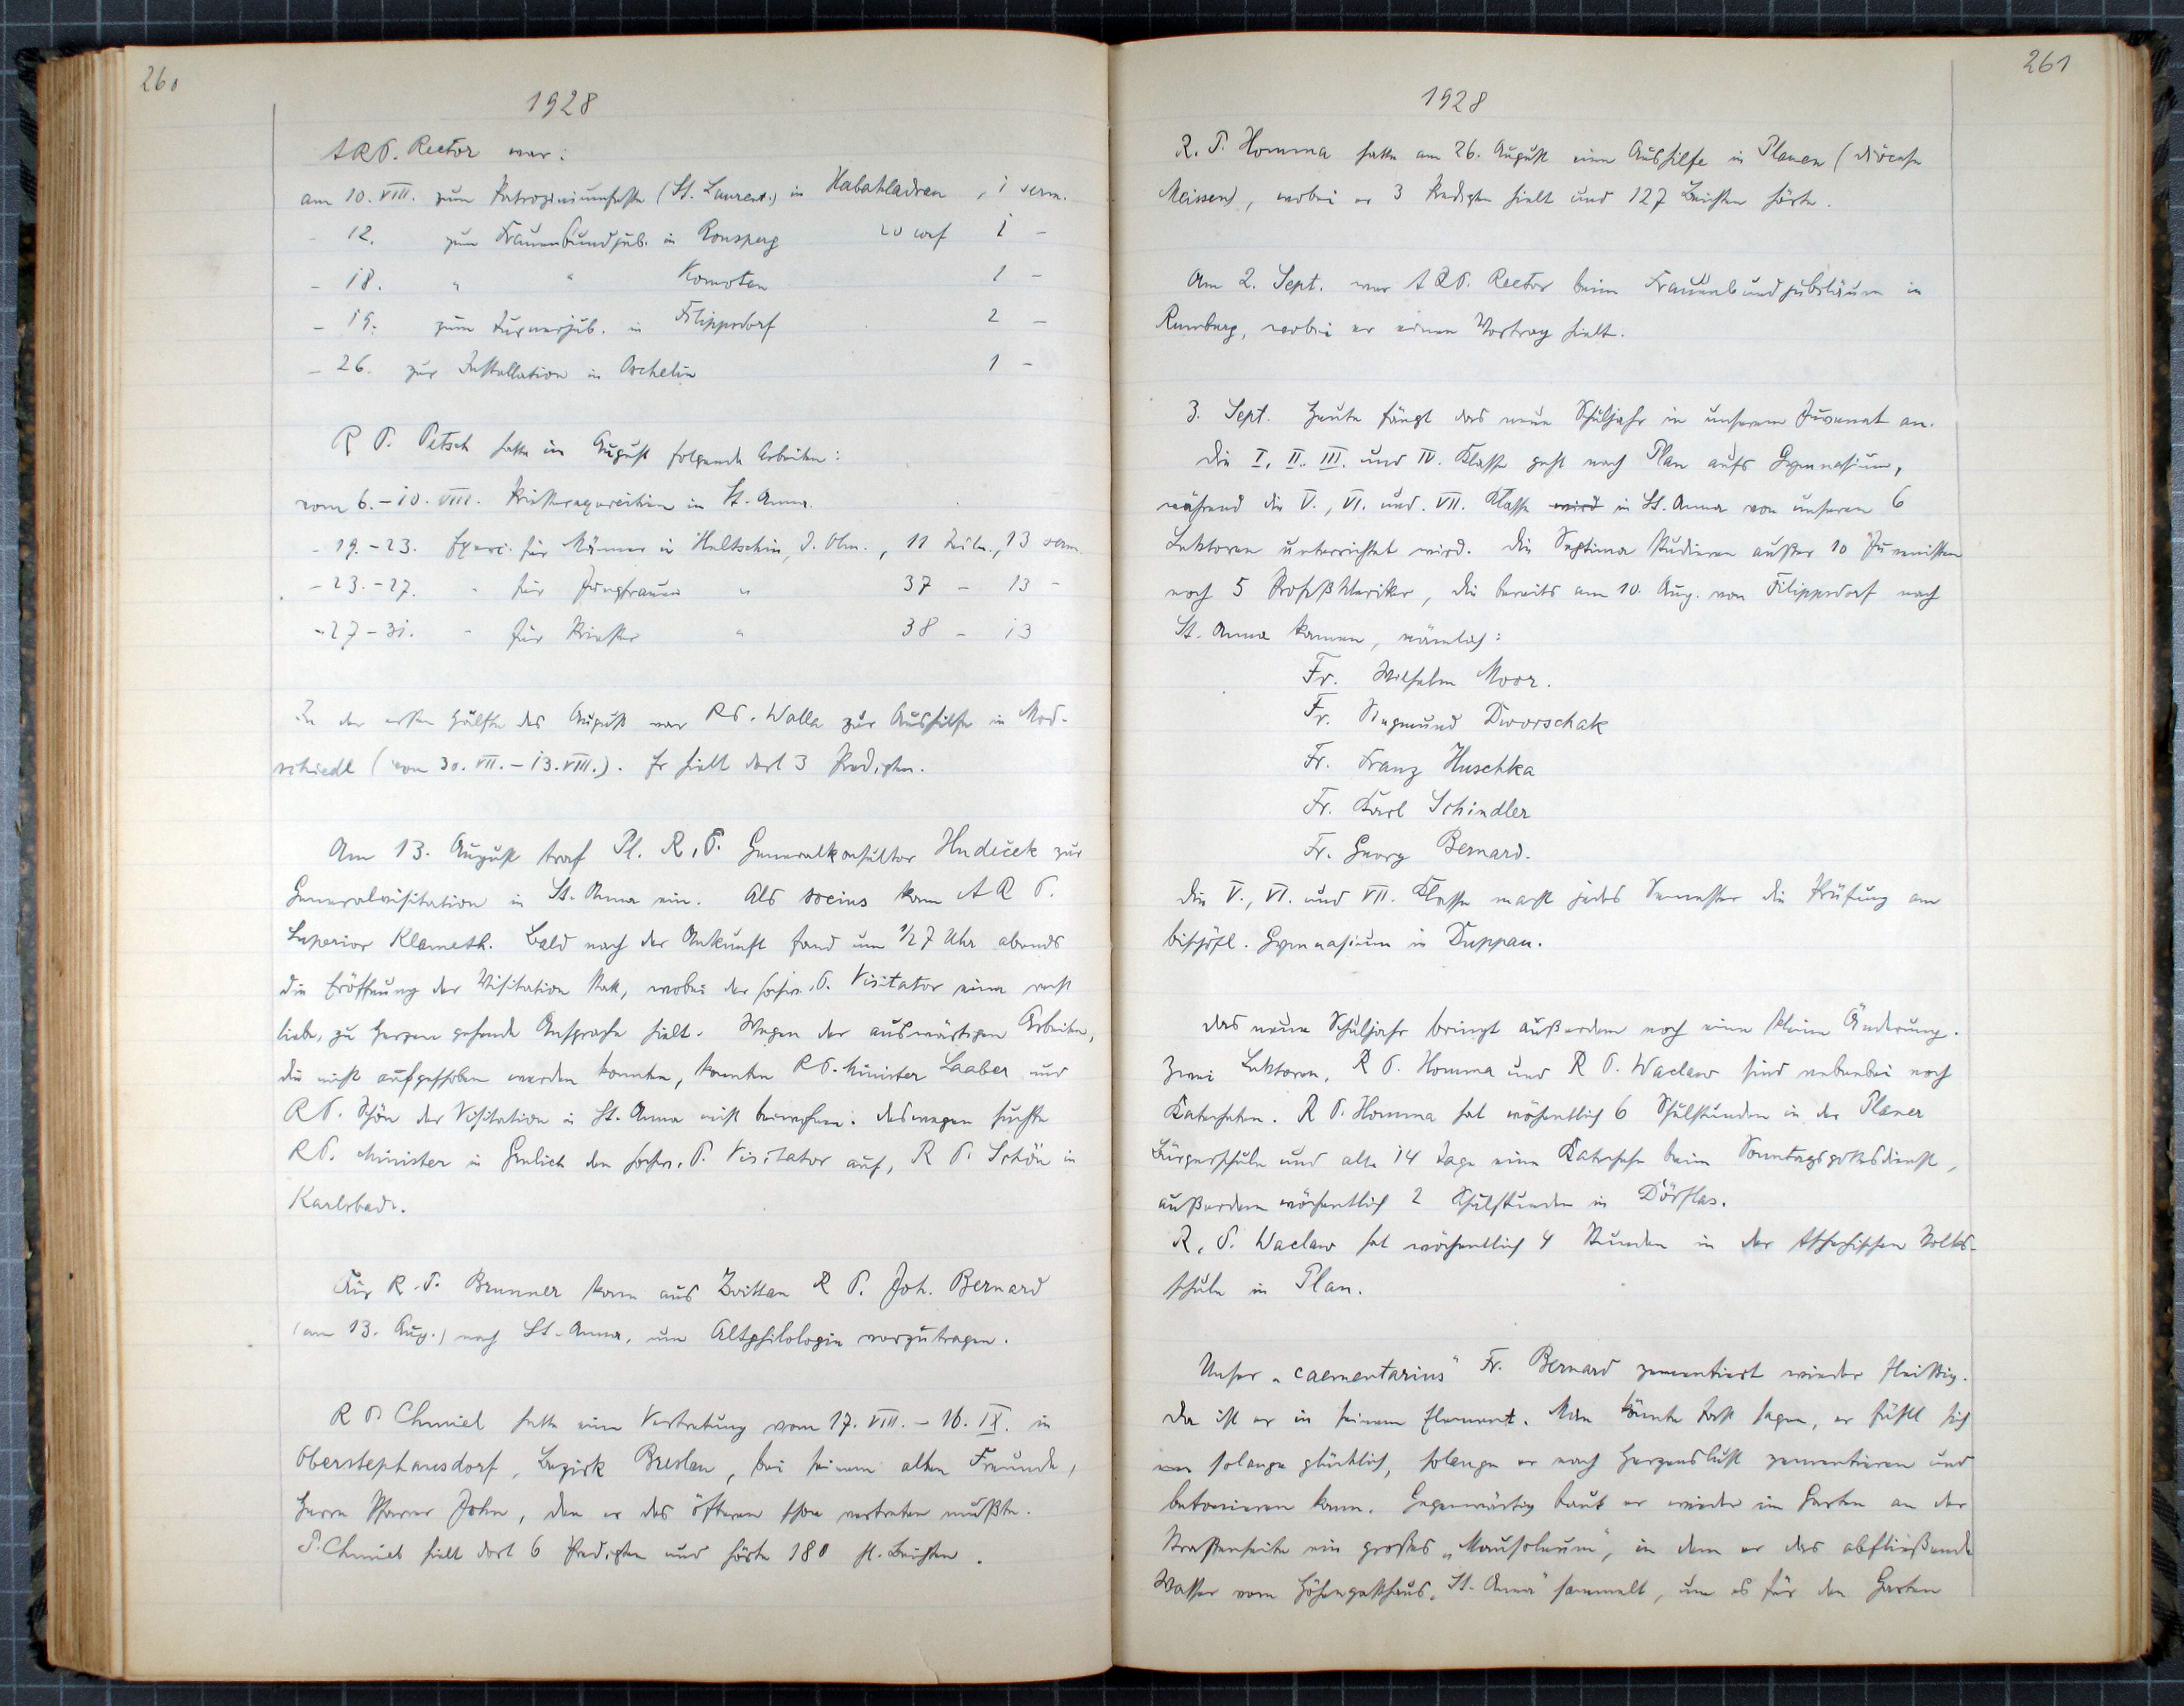 260
1928
ARP. Rector war:
am 10. VIII. zum Patroziniumsfeste (St. Laurent.) in Habakladrau, 1 serm.
- 12. zum Frauenbundjub. in Ronsperg 20 conf 1 -
- 18. " " Komotau 1 -
- 19. zum Turnerjub. in Filippsdorf 2 -
- 26. zur Installation in Oschelin 1 -
R P. Petsch hatte im August folgende Arbeiten:
vom 6.-10. VIII. Priesterexerzitien in St. Anna
- 19.-23. Exerz. für Männer in Hultschin, D. Olm., 11 Teiln., 13 serm.
- 23.-27. - für Jungfrauen " 37 - 13 -
- 27-31. - für Priester " 38 - 13
In der ersten Hälfte des August war RP. Walla zur Aushilfe in Mod-
schiedl (von 30. VII. - 13. VIII.). Er hielt dort 3 Predigten.
Am 13. August traf Pl. R. P. Generalkonsultor Hudeček zur
Generalvisitation in St. Anna ein. Als socius kam A R P.
Superior Klameth. Bald nach der Ankunft fand um 1/2 7 Uhr abends
die Eröffnung der Visitation statt, wobei der hochw. P. Visitator eine recht
liebe, zu Herzen gehende Ansprache hielt. Wegen der auswärtigen Arbeiten,
die nicht aufgeschoben werden konnten, konnten RP. Minister Laaber und
RP. Schön der Visitation in St. Anna nicht beiwohnen. Deswegen suchte
RP. Minister in Grulich den hochw. P. Visitator auf, R P. Schön in
Karlsbad.
Für R. P. Brunner kam aus Zwittau R P. Joh. Bernard
(am 13. Aug.) nach St. Anna, um Altphilologie vorzutragen.
R P. Chmiel hatte eine Vertretung vom 17. VIII. - 16. IX. in
Oberstephansdorf, Bezirk Breslau, bei seinem alten Freunde,
Herrn Pfarrer John, den er des öfteren schon vertreten mußte.
P. Chmiel hielt dort 6 Predigten und hörte 180 hl. Beichten.
261
1928
R. P. Homma hatte am 26. August eine Aushilfe in Plauen (Diözese
Meissen), wobei er 3 Predigten hielt und 127 Beichten hörte.
Am 2. Sept. war A R P. Rector beim Frauenbundjubiläum in
Rumburg, wobei er einen Vortrag hielt.
3. Sept. Heute fängt das neue Schuljahr in unserem Juvenat an.
Die I. II. III. und IV. Klasse geht nach Plan aufs Gymnasium,
während die V., VI. und VII. Klasse wird in St. Anna von unseren 6
Lektoren unterrichtet wird. Die Septima studieren außer 10 Juvenisten
noch 5 Profeßkleriker, die bereits am 10. Aug. von Filippsdorf nach
St. Anna kamen, nämlich:
Fr. Wilhelm Moor.
Fr. Siegmund Dworschak
Fr. Franz Huschka
Fr. Karl Schindler
Fr. Georg Bernard.
Die V., VI. und VII. Klasse macht jedes Semester die Prüfung am
bischöfl. Gymnasium in Duppau.
Das neue Schuljahr bringt außerdem noch eine kleine Änderung.
Zwei Lektoren, R P. Homma und R P. Waclaw sind nebenbei noch
Katecheten. R P. Homma hat wöchentlich 6 Schulstunden in der Planer
Bürgerschule und alle 14 Tage eine Katechese beim Sonntagsgottesdienst,
außerdem wöchentlich 2 Schulstunden in Dörflas.
R. P. Waclaw hat wöchentlich 4 Stunden in der tschechischen Volks-
schule in Plan.
Unser „caementarius" Fr. Bernard zementiert wieder fleißig.
Da ist er in seinem Element. Man könnte fast sagen, er fühlt sich
nur solange glücklich, solange er nach Herzenslust zementieren und
betonieren kann. Gegenwärtig baut er wieder im Garten an der
Straßenseite ein großes „Mausoleum", in dem er das abfließende
Wasser vom Höhengasthaus „St. Anna" sammelt, um es für den Garten